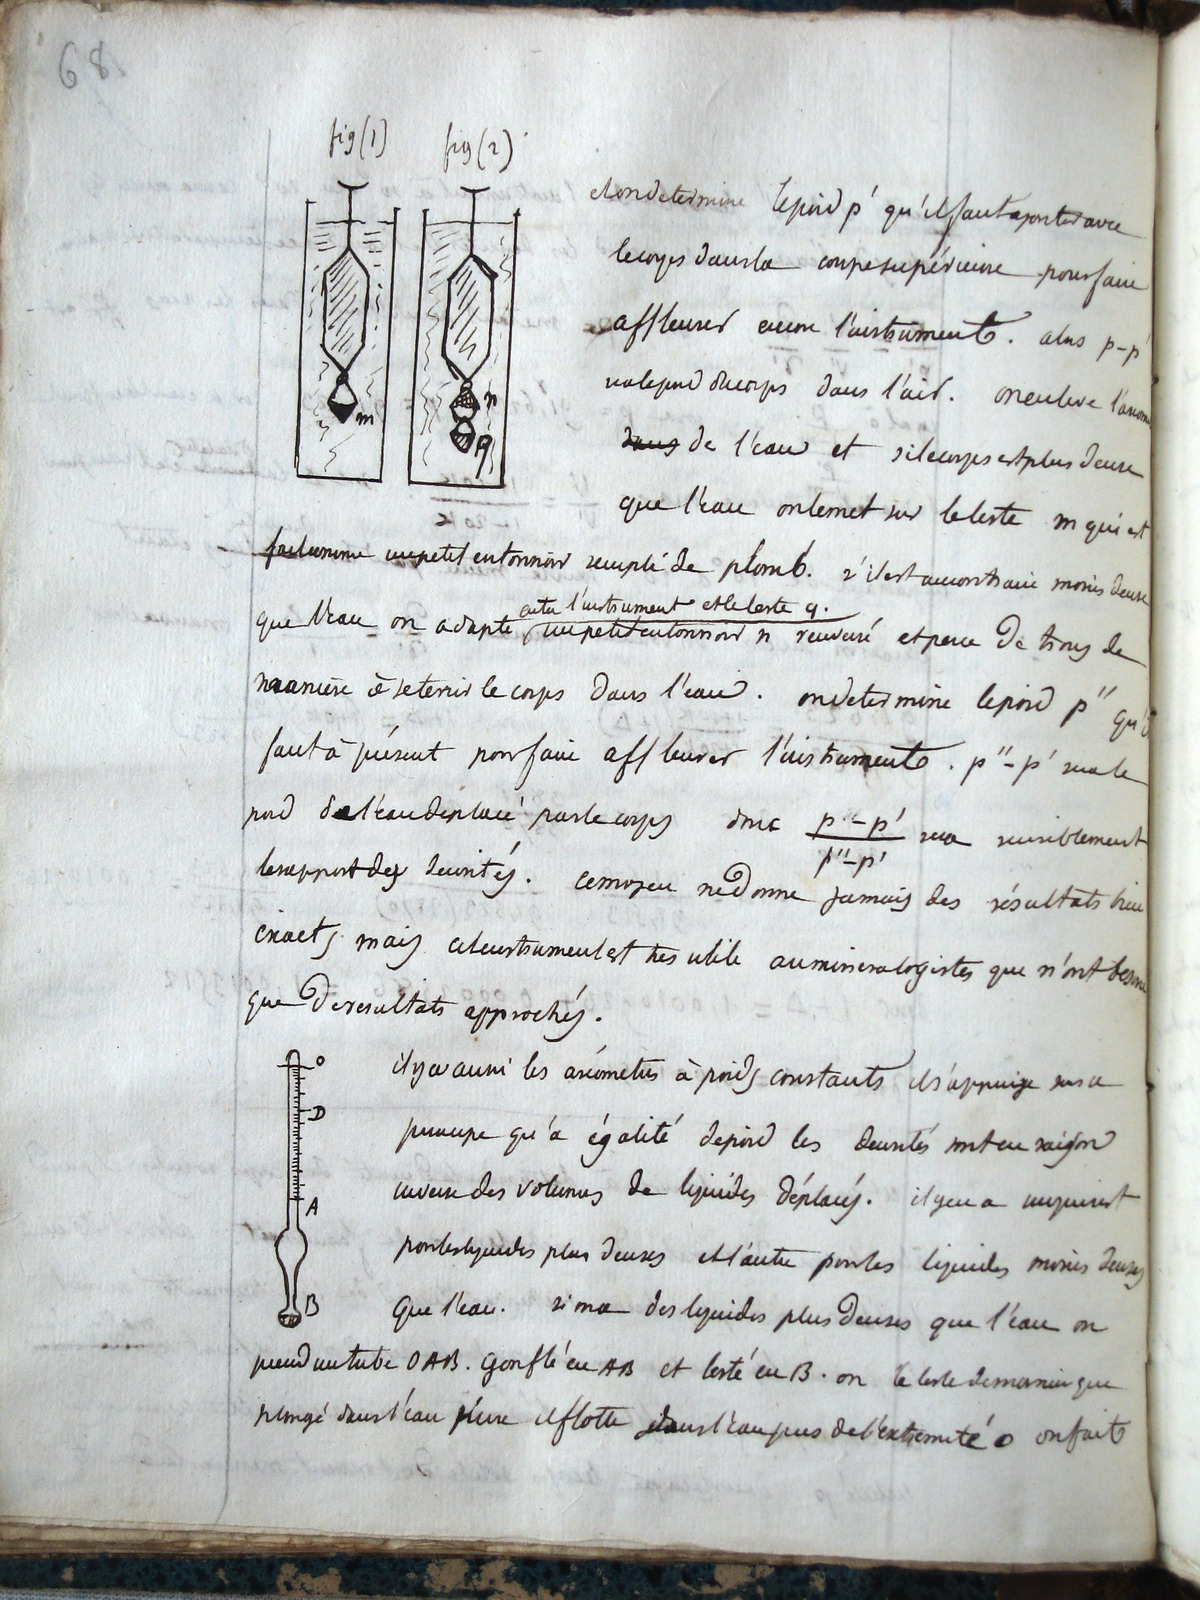 68
fig(1) fig(2)
et on determine le poid p' qu'il faut ajouter avec
le corps dans la coupe supérieure pour faire
affleurer encore l'instrument. alors p-p'
sera le poid du corps dans l'air. on enleve l'areom
dans de l'eau et si le corps est plus dense
que l'eau on le met sur le leste m qui est
fait comme un petit entonnoir rempli de plomb. s'il est au contraire moins dense
entre l'instrument et le leste q.
que l'eau on adapte un petit entonnoir n renversé et percé de trous de
manière à retenir le corps dans l'eau. on determine le poid p'' qu'il
faut à présent pour faire affleurer l'instrument. p''-p' sera le
poid de l'eau déplacé par le corps donc p-p' sera sensiblement
p''-p'
le rapport des densités. ce moyen ne donne jamais des résultats bien
exacts mais cet instrument est tres utile au mineralogistes que n'ont besoin
que de resultats approchés.
il y a aussi les aréometres à poids constants il s'appuye sur ce
principe qu'à égalité de poid les densités sont en raison
inverse des volumes de liquides déplacés. il y en a un qui sert
pour les liquides plus denses et l'autre pour les liquides moins denses
que l'eau. si on a des liquides plus denses que l'eau on
prend un tube OAB. gonflé en AB et lesté en B. on le leste de maniere que
plongé dans l'eau pure il flotte dans l'eau pres de l'extremité o on fait
m
n
q
O
D
A
B